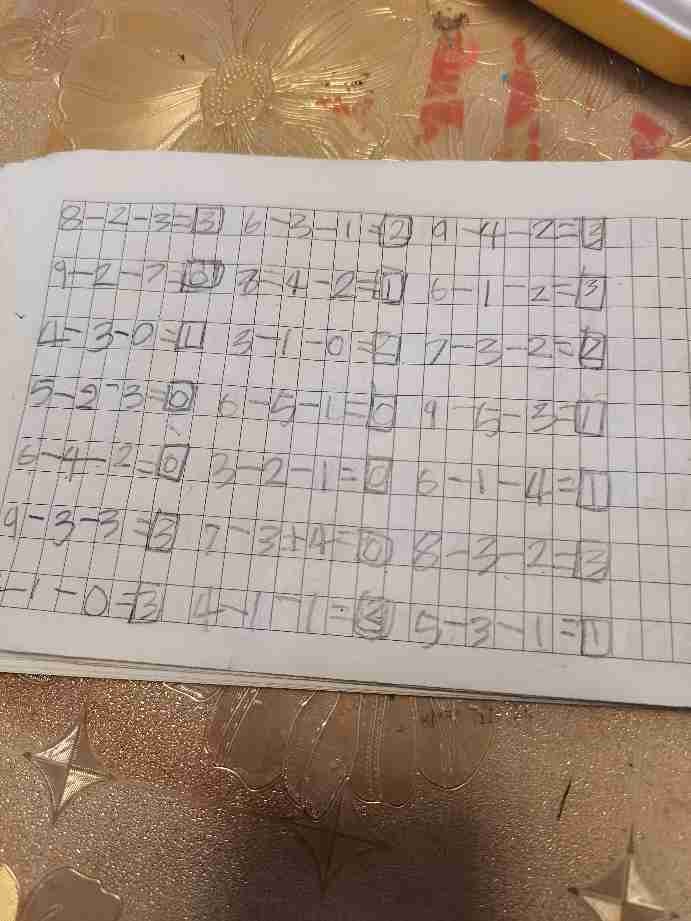 8-2-3=3 6-3-1=2 9-4-2=3
9-2-7=0 3=4-2=1 6-1-2=3
4-3-0=1 3-1-0=2 7-3-2=2
5-2-3=0 6-5-1=0 9-5-3=1
6-4-2=0 3-2-1=0 6-1-4=1
9-3-3=3 7-3-4=0 8-3-2=3
-1-0=3 4-1-1=3 5-3-1=1